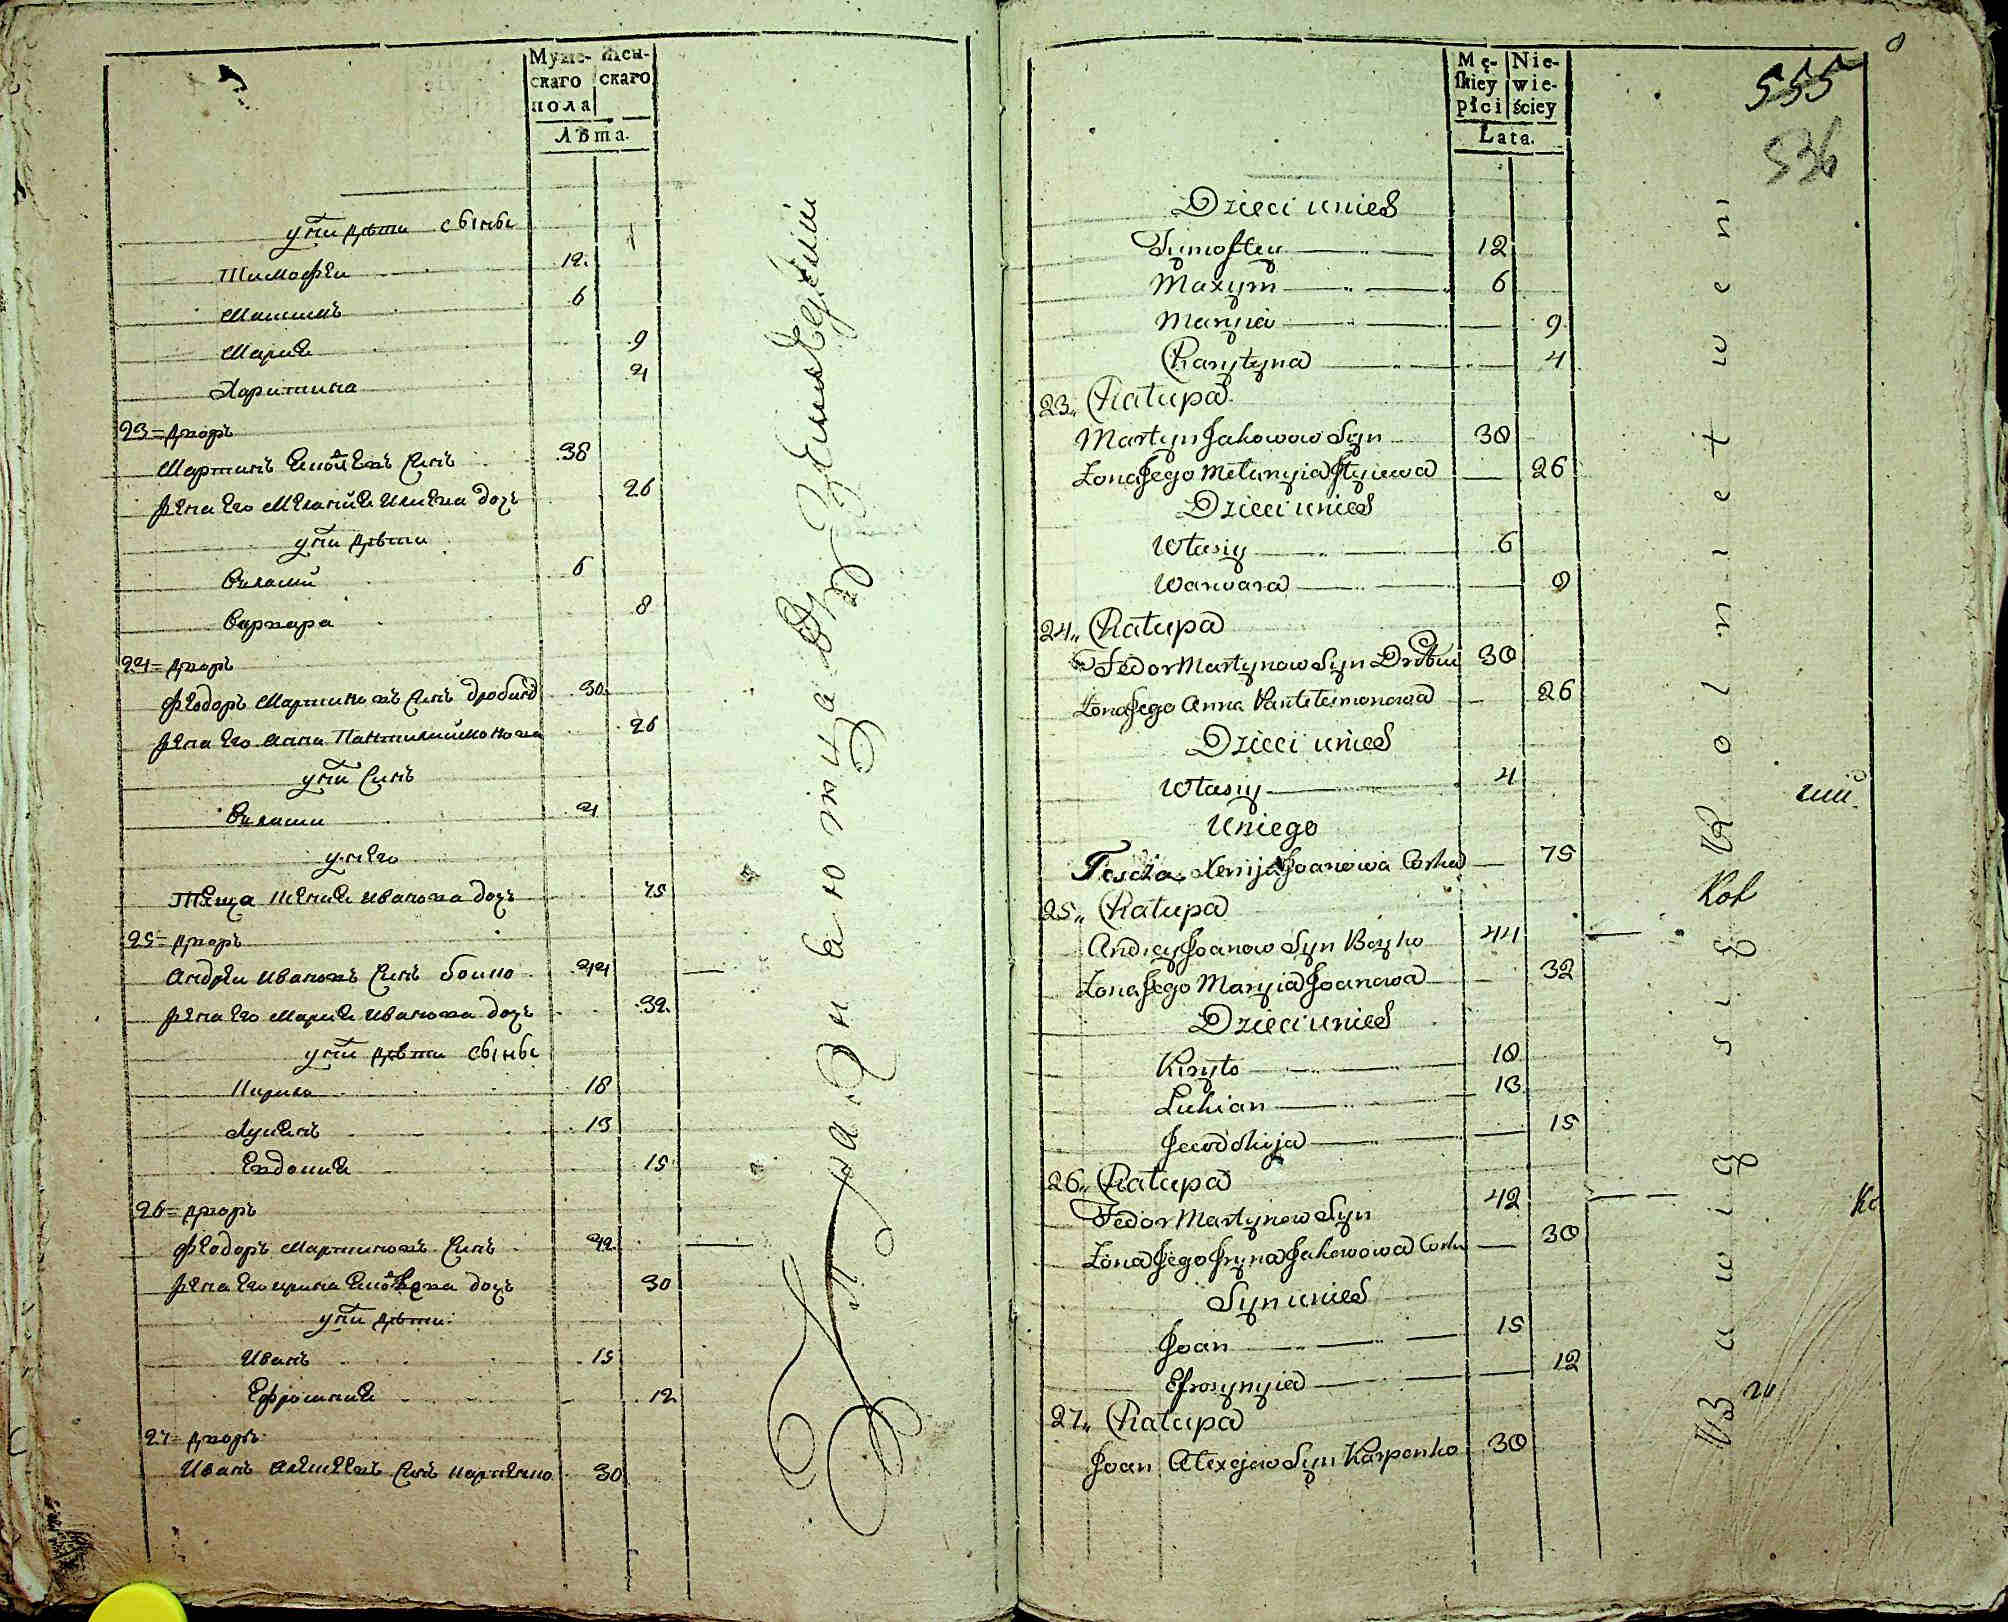 Муже-
скаго
пола
Жен-
скаго
Лѣта.
у них дѣти сынъ
Тимофѣи 12.
Маѯимъ 6
Мариа 9
Харитина 4
23 = дворъ
Мартинъ Яковлевъ Синъ 38
Жена Его Меланиа Илиева доч 26
у них дѣти
Власий 6
Варвара 8
24 = дворъ
Феодоръ Мартиновъ Синъ дробиц 30.
Жена Его Анна Пантилиймонова 26
у них Синъ
Власии 4
у него
Тѣща Ксениа Иванова доч 75
25 = дворъ
Андрѣи Ивановъ Синъ боико 44
Жена Его Мариа Иванова доч 32.
у них дѣти сынъ
Кирило 18
Лукианъ 13
Евдокиа 15
26 = дворъ
Феодоръ Мартиновъ Синъ 42.
Жена Его ирина Яковлева доч 30
у них дѣти
Иванъ 15
Ефросиниа 12
27 = дворъ
Иванъ Алеѯеевъ Синъ карпенко 30
Mę-
ſkiey
płci
Nie-
wie-
ściey
Lata.
555
536
Dzieci unich
Tymoftey 12
Maxym 6
Maryia 9
Charytyna 4
23. Chałupa
Martyn Jakowow Syn 38
Zona Jego Mełanyia Jlyiewa 26
Dzieci unich
Własiy 6
Warwara 8
24. Chałupa
Fedor Martynow Syn Drobic 30
Zona Jego Anna Pantełeimonowa 26
Dzieci unich
Własiy 4
Uniego
Teścża Xenija Joanowa Corka 75
25. Chałupa
Andrey Joanow Syn Boyko 44
Zona Jego Maryia Joanowa 32
Dzieci unich
Kiryło 18
Lukian 13
Jewdokija 15
26. Chałupa
Fedor Martynow Syn 42
Zona Jego Jryna Jakowowa Corka 30
Syn unich
Joan 15
Efrosynyia 12
27. Chałupa
Joan Alexejew Syn Karpenko 30
Zawią się Kolnietwem
Kol
Ko